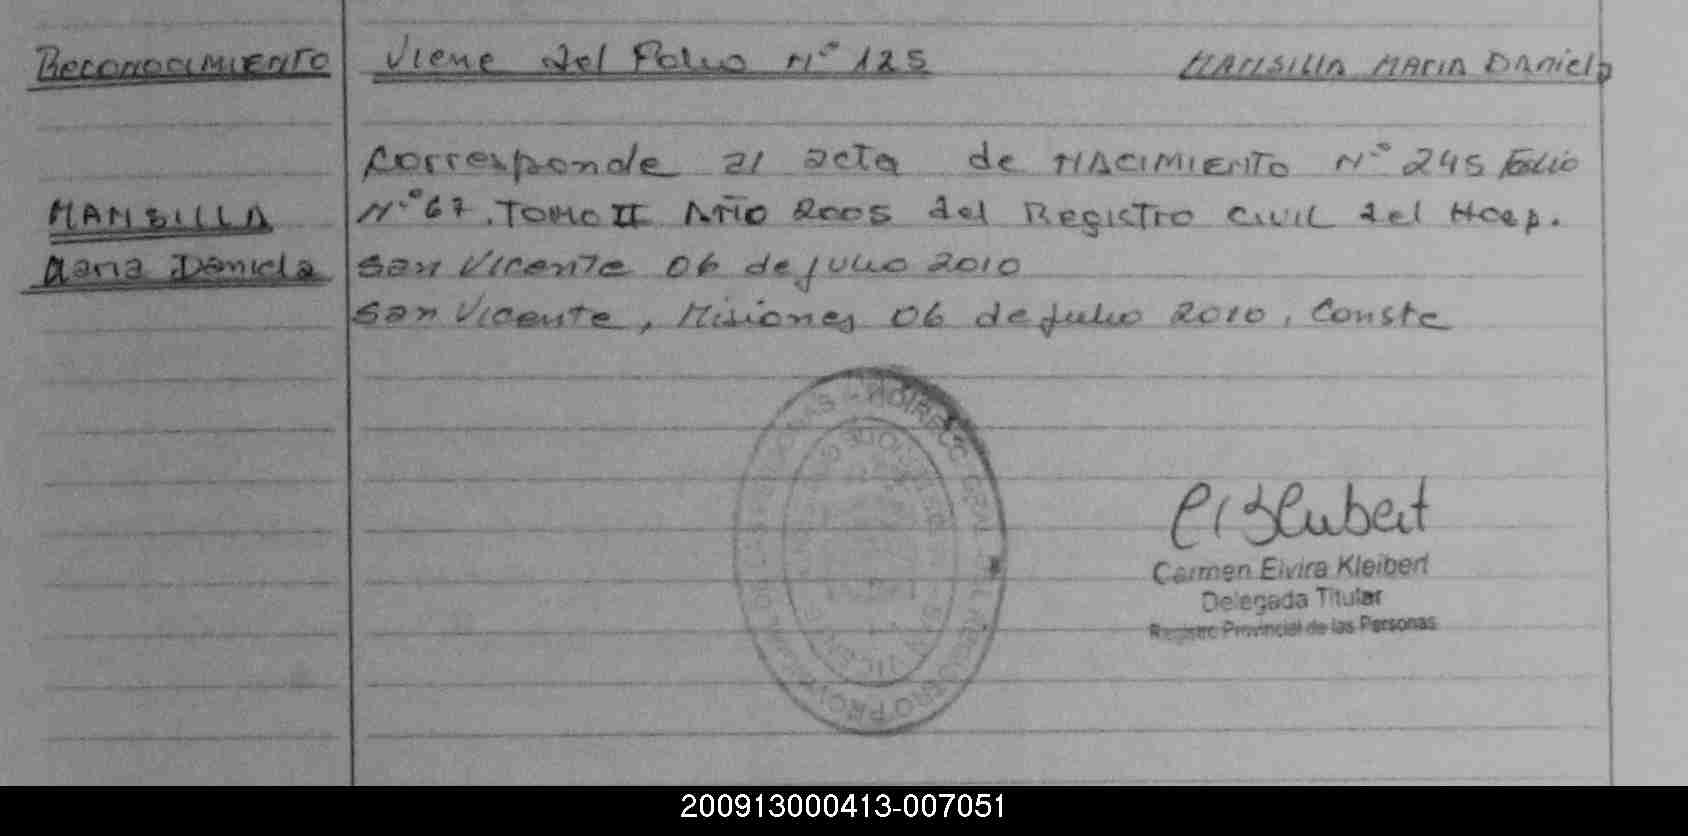 Reconocimiento
Viene del Folio Nº 125
MANSILLA MARIA Daniela
Corresponde al acta de NACIMIENTO Nº 245 Folio
MANSILLA
Nº 67. TOMO II AÑO 2005 del Registro Civil del Hosp.
Maria Daniela
San Vicente 06 de julio 2010
San Vicente, Misiones 06 de Julio 2010, Conste
DIRECC GRAL DEL REGISTRO PROVINCIAL DE LAS PERSONAS
SAN VICENTE
Carmen Elvira Kleibert
Delegada Titular
Registro Provincial de las Personas
200913000413-007051